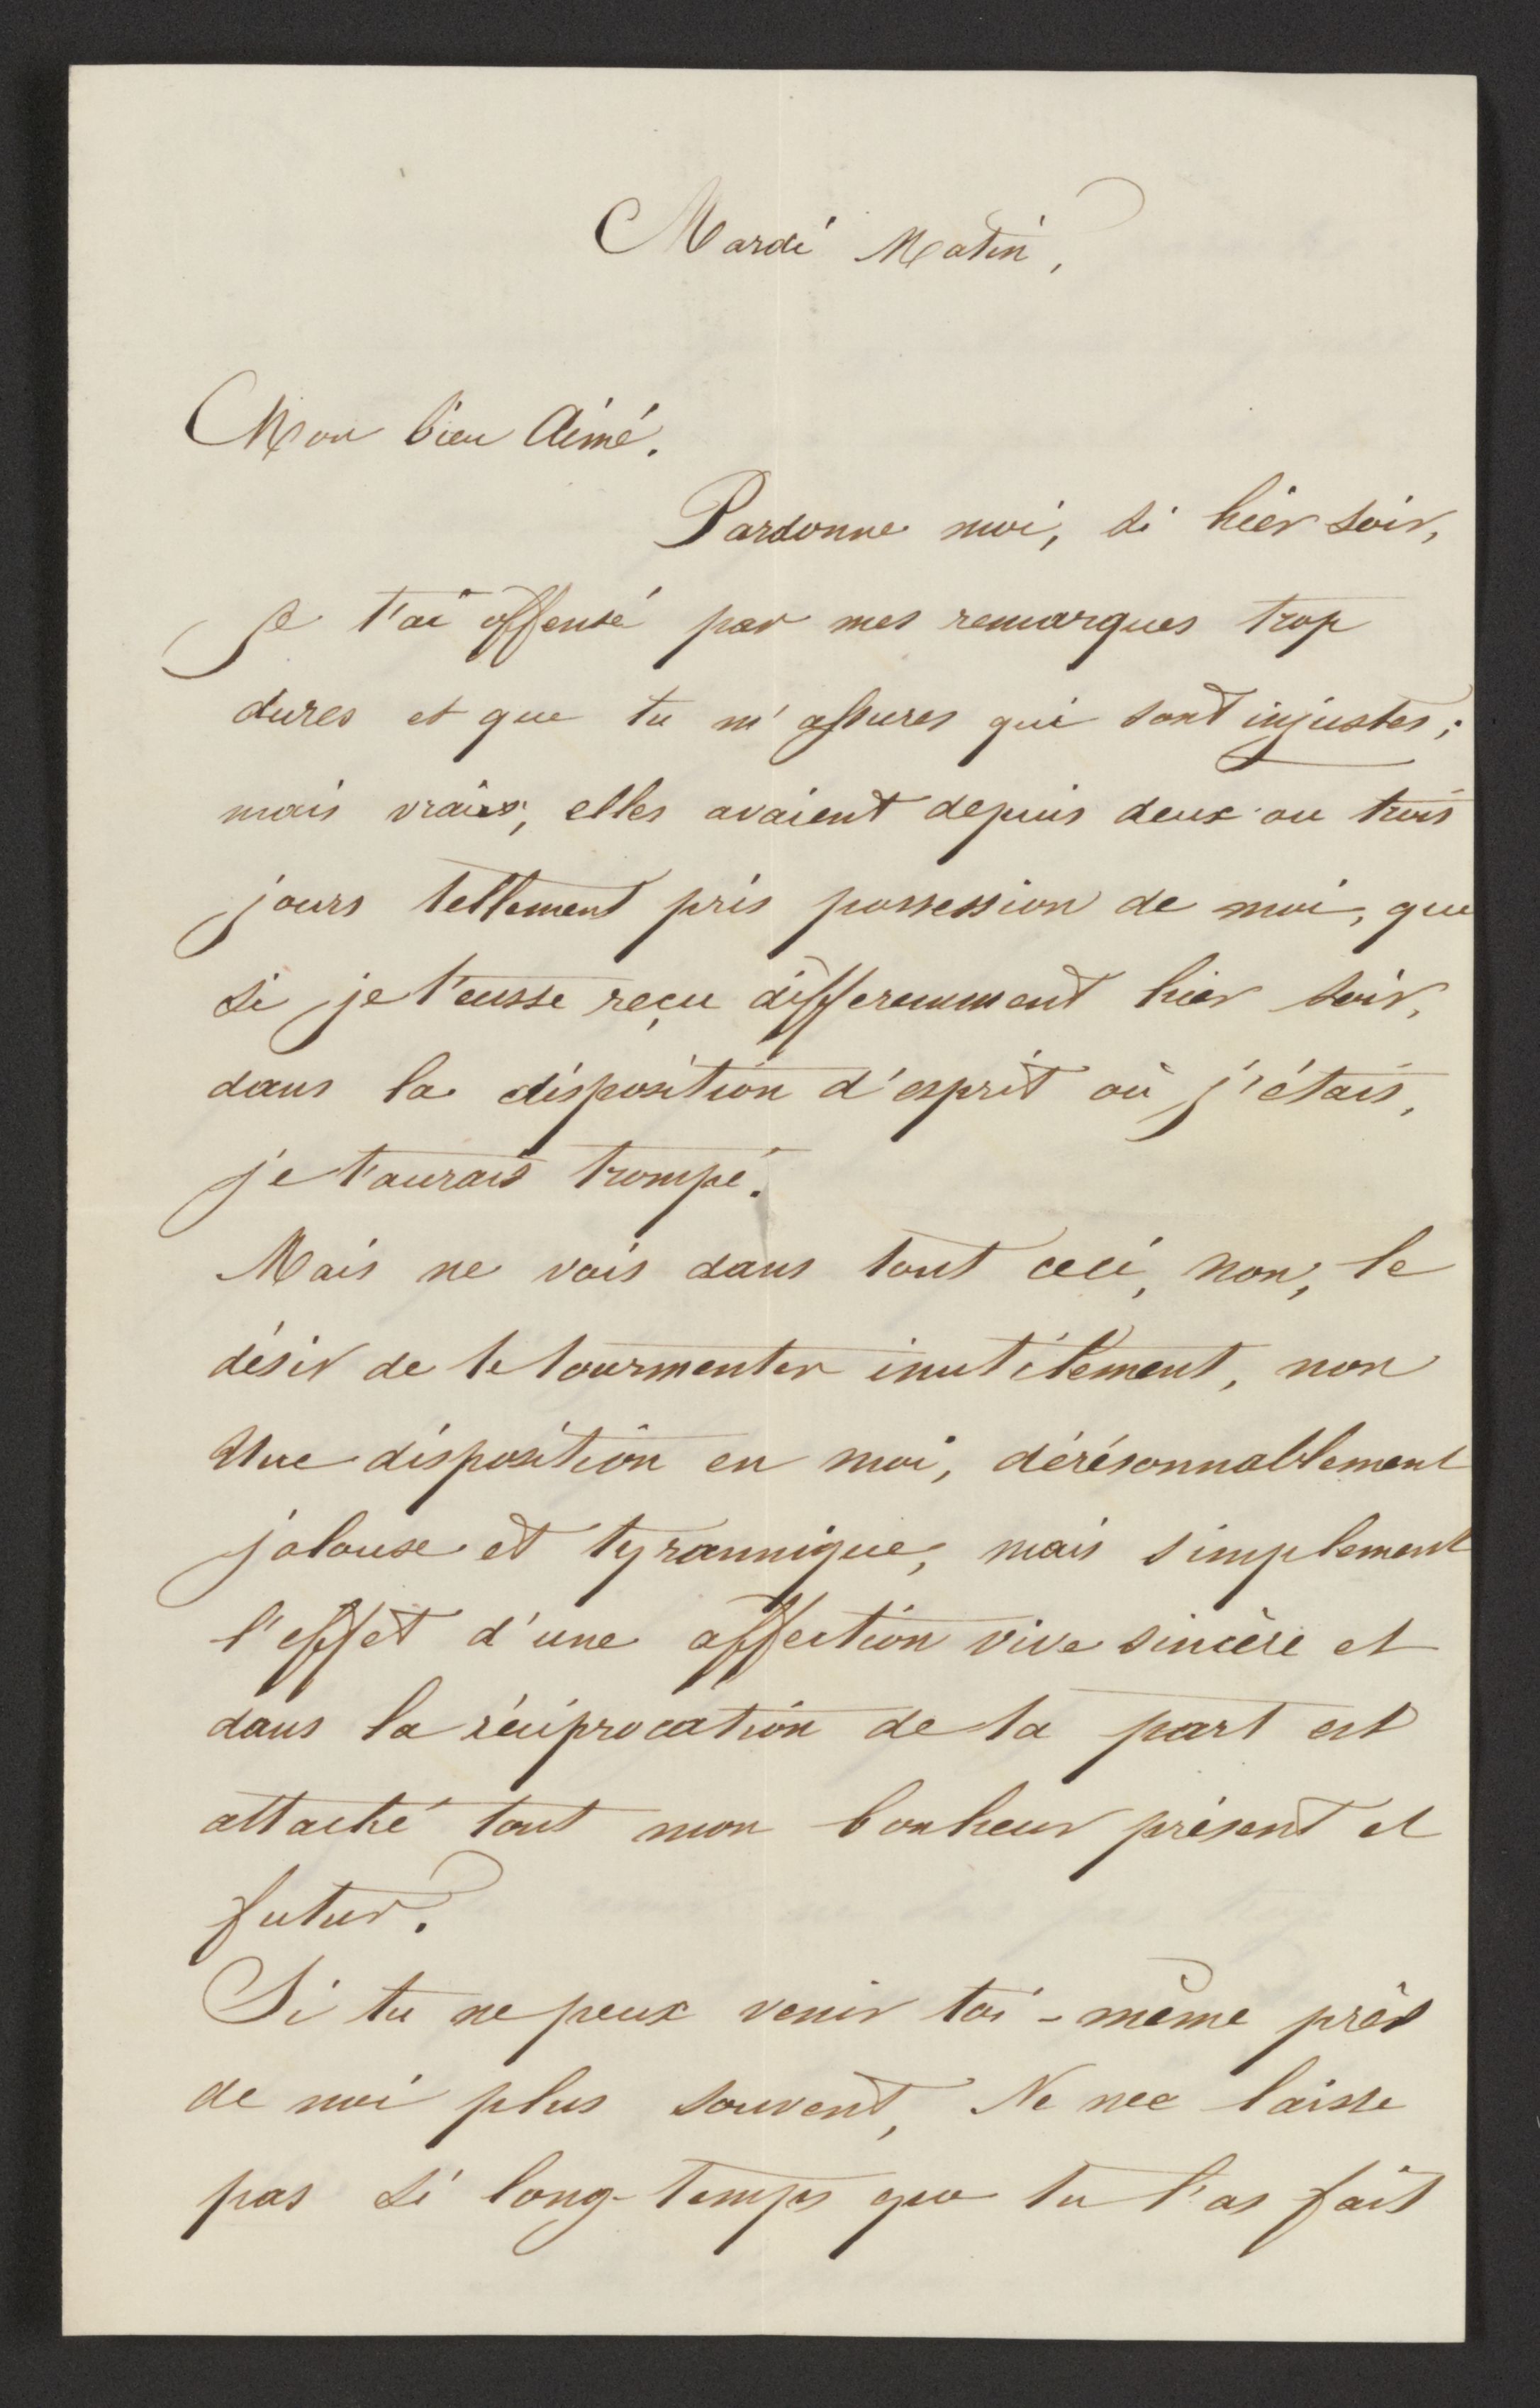 Mardi Matin,
Mon bien Aimé.
Pardonne moi, si hier soir,
je t'ai offensé par mes remarques trop
dures et que tu m'assures qui sont injustes;
mais vraies, elles avaient depuis deux ou trois
jours tellement pris possession de moi, que
si je t'eusse reçu differemment hier soir,
dans la disposition d'esprit où j'étais,
je t'aurais trompé.
Mais ne vois dans tout ceci, non, le
désir de te tourmenter inutilement, non
Une disposition en moi, dérésonnablement
jalouse et tyrannique, mais simplement
l'effet d'une affection vive sincère et
dans la réciprocation de ta part est
attaché tout mon bonheur présent et
futur.
Si tu ne peux venir toi-même près
de moi plus souvent, Ne me laisse
pas si long-temps que tu l'as fait